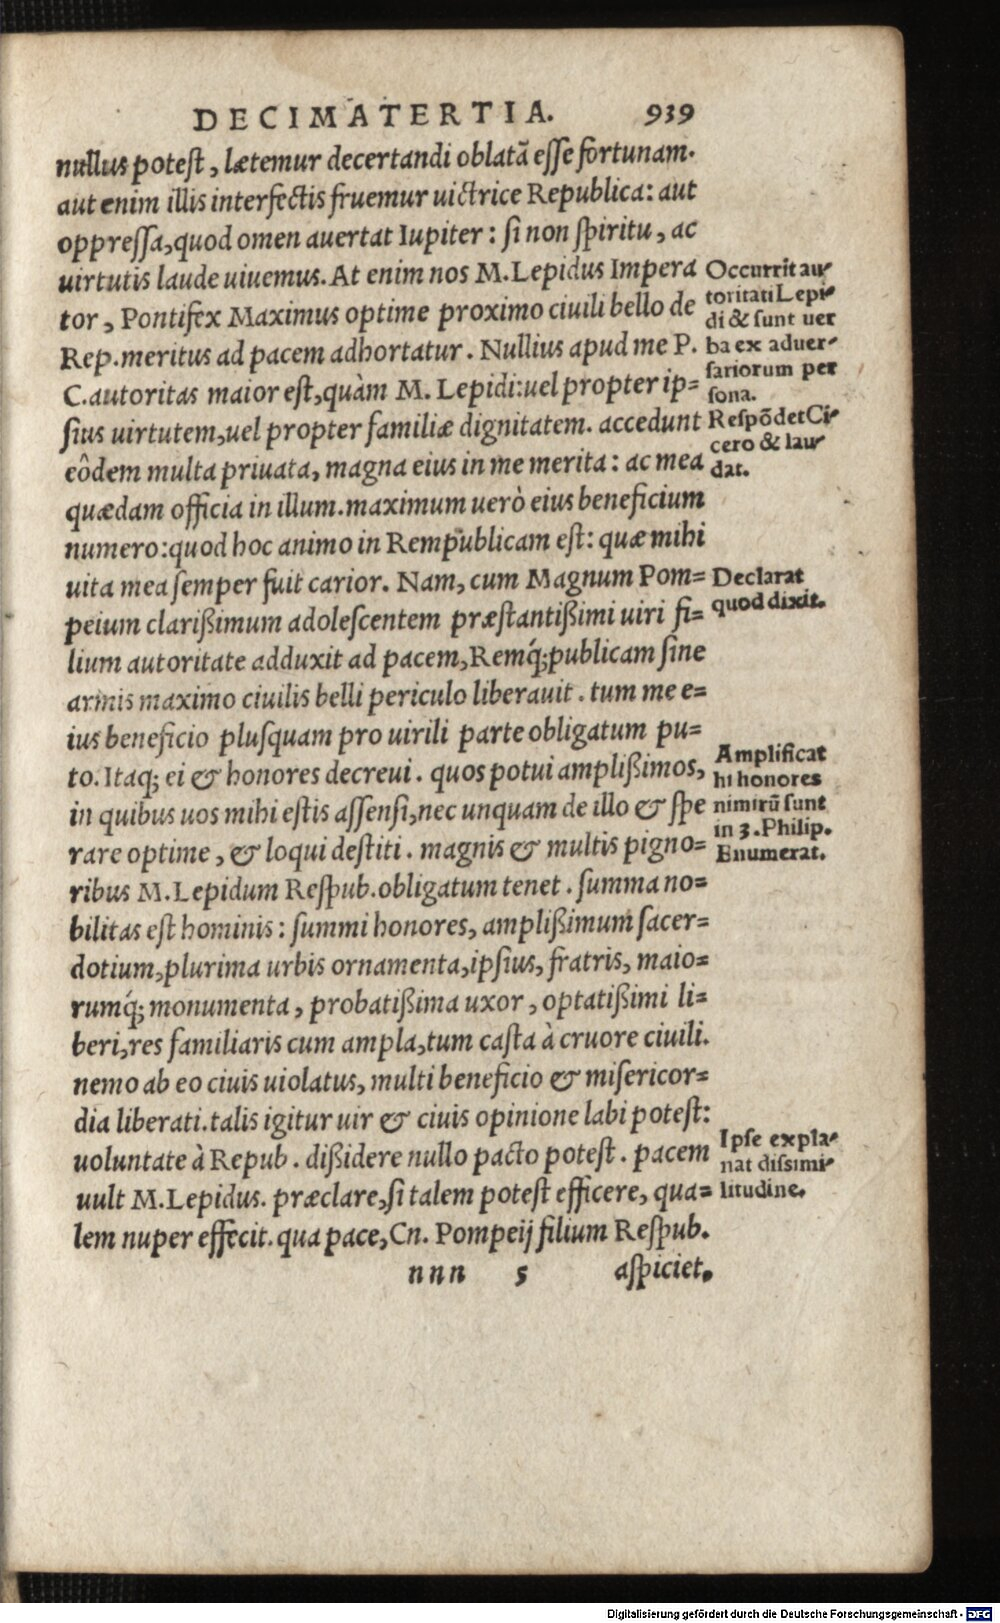 DECIMATERTIA. 939
nullus potest, lætemur decertandi oblatã esse fortunam.
aut enim illis interfectis fruemur uictrice Republica: aut
oppressa, quod omen auertat Iupiter: si non spiritu, ac
uirtutis laude uiuemus. At enim nos M. Lepidus Impera
tor, Pontifex Maximus optime proximo ciuili bello de
Rep. meritus ad pacem adhortatur. Nullius apud me P.
C. autoritas maior est, quàm M. Lepidi: uel propter ip=
sius uirtutem, uel propter familiæ dignitatem. accedunt
eôdem multa priuata, magna eius in me merita: ac mea
quædam officia in illum. maximum uerò eius beneficium
numero: quod hoc animo in Rempublicam est: quæ mihi
uita mea semper fuit carior. Nam, cum Magnum Pom=
peium clarißimum adolescentem præstantißimi uiri fi=
lium autoritate adduxit ad pacem, Remq́; publicam sine
armis maximo ciuilis belli periculo liberauit. tum me e=
ius beneficio plusquam pro uirili parte obligatum pu=
to. Itaq; ei & honores decreui. quos potui amplißimos,
in quibus uos mihi estis assensi, nec unquam de illo & spe
rare optime, & loqui destiti. magnis & multis pigno=
ribus M. Lepidum Respub. obligatum tenet. summa no=
bilitas est hominis: summi honores, amplißimum sacer=
dotium, plurima urbis ornamenta, ipsius, fratris, maio=
rumq́; monumenta, probatißima uxor, optatißimi li=
beri, res familiaris cum ampla, tum casta à cruore ciuili.
nemo ab eo ciuis uiolatus, multi beneficio & misericor=
dia liberati. talis igitur uir & ciuis opinione labi potest:
uoluntate à Repub. dißidere nullo pacto potest. pacem
uult M. Lepidus. præclare, si talem potest efficere, qua=
lem nuper effecit. qua pace, Cn. Pompeij filium Respub.
nnn 5 aspiciet.
Occurrit au-
toritati Lepi-
di & sunt uer
ba ex aduer-
sariorum per
sona.
Respõdet Ci-
cero & lau-
dat.
Declarat
quod dixit.
Amplificat
hi honores
nimirũ sunt
in 3. Philip.
Enumerat.
Ipse expla-
nat dissimi-
litudine.
Digitalisierung gefördert durch die Deutsche Forschungsgemeinschaft - DFG